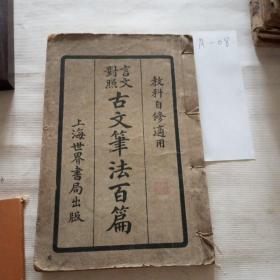 教科自修適用
言文
對照
古文筆法百篇
上海世界書局出版